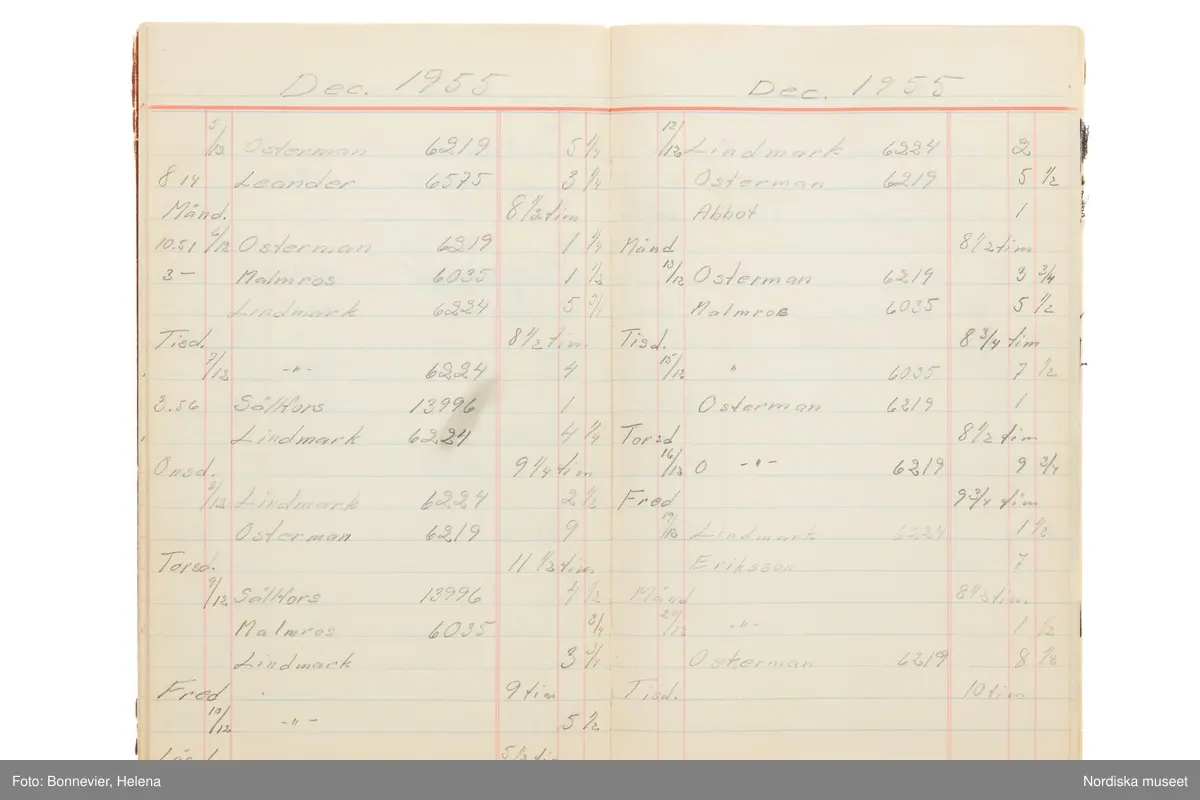 Dec. 1955
5/12 Osterman 6219 5 1/4
8 14 Leander 6575 3 1/4
Månd. 8 1/2 tim
10.51 6/12 Osterman 6219 1 1/4
3 — Malmros 6035 1 1/2
Lindmark 6224 5 3/4
Tisd. 8 1/2 tim.
7/12 -"- 6224 4
3.56 Sälffors 13996 1
Lindmark 6224 4 1/4
Onsd. 9 1/4 tim
8/12 Lindmark 6224 2 1/2
Osterman 6219 9
Torsd. 11 1/2 tim.
9/12 Sälffors 13996 4 1/2
Malmros 6035 3/4
Lindmark 3 3/4
Fred 9 tim
10/12 -"- 5 1/2
5 1/2 tim
Dec. 1955
12/12 Lindmark 6224 2
Osterman 6219 5 1/2
Abbot 1
Månd 8 1/2 tim
13/12 Osterman 6219 3 3/4
Malmros 6035 5 1/2
Tisd. 8 3/4 tim
15/12 " 6035 7 1/2
Osterman 6219 1
Torsd 8 1/2 tim
16/12 O -"- 6219 9 3/4
Fred 9 3/4 tim
19/12 Lindmark 6224 1 1/2
Eriksson 7
Månd 8 1/2 tim.
20/12 -"- 1 1/2
Osterman 6219 8 1/2
Tisd. 10 tim
Foto: Bonnevier, Helena
Nordiska museet